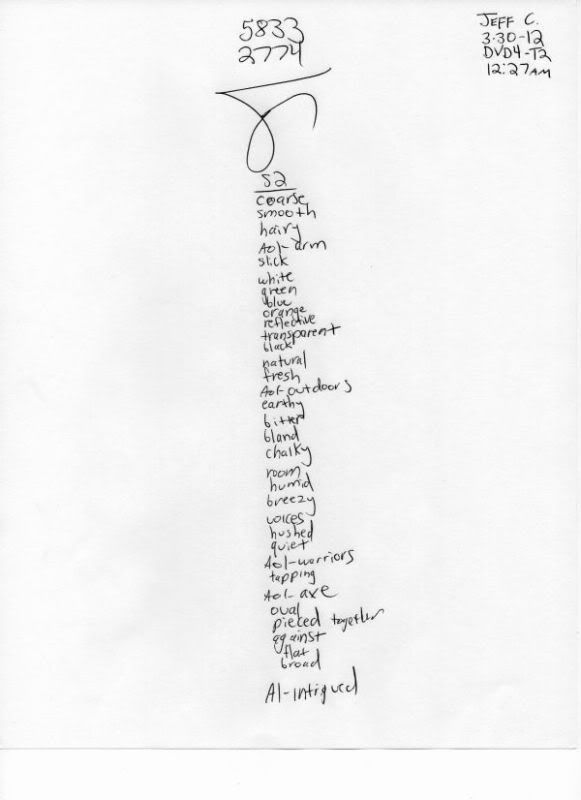 5833
2774
JEFF C.
3-30-12
DVD4-T2
12:27AM
S2
coarse
smooth
hairy
Aol-arm
slick
white
green
blue
orange
reflective
transparent
black
natural
fresh
Aol-outdoors
earthy
bitter
bland
chalky
room
humid
breezy
voices
hushed
quiet
Aol-warriors
tapping
Aol-axe
oval
pieced together
against
flat
broad
AI-intigued